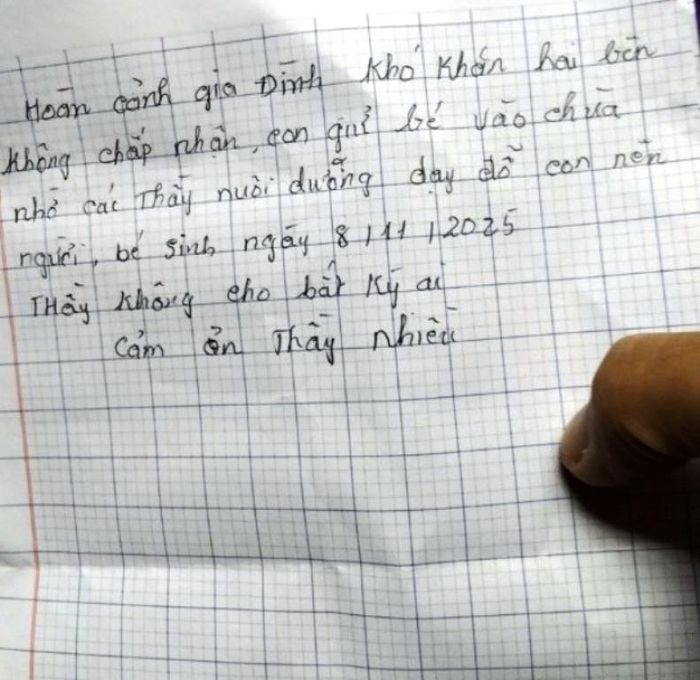 Hoàn cảnh gia Đình khó khăn hai bên
không chấp nhận, con gửi bé vào chùa
nhờ các Thầy nuôi dưỡng dạy dỗ con nên
người, bé sinh ngày 8/11/2025
THầy không cho bất kỳ ai
Cảm ơn Thầy nhiều